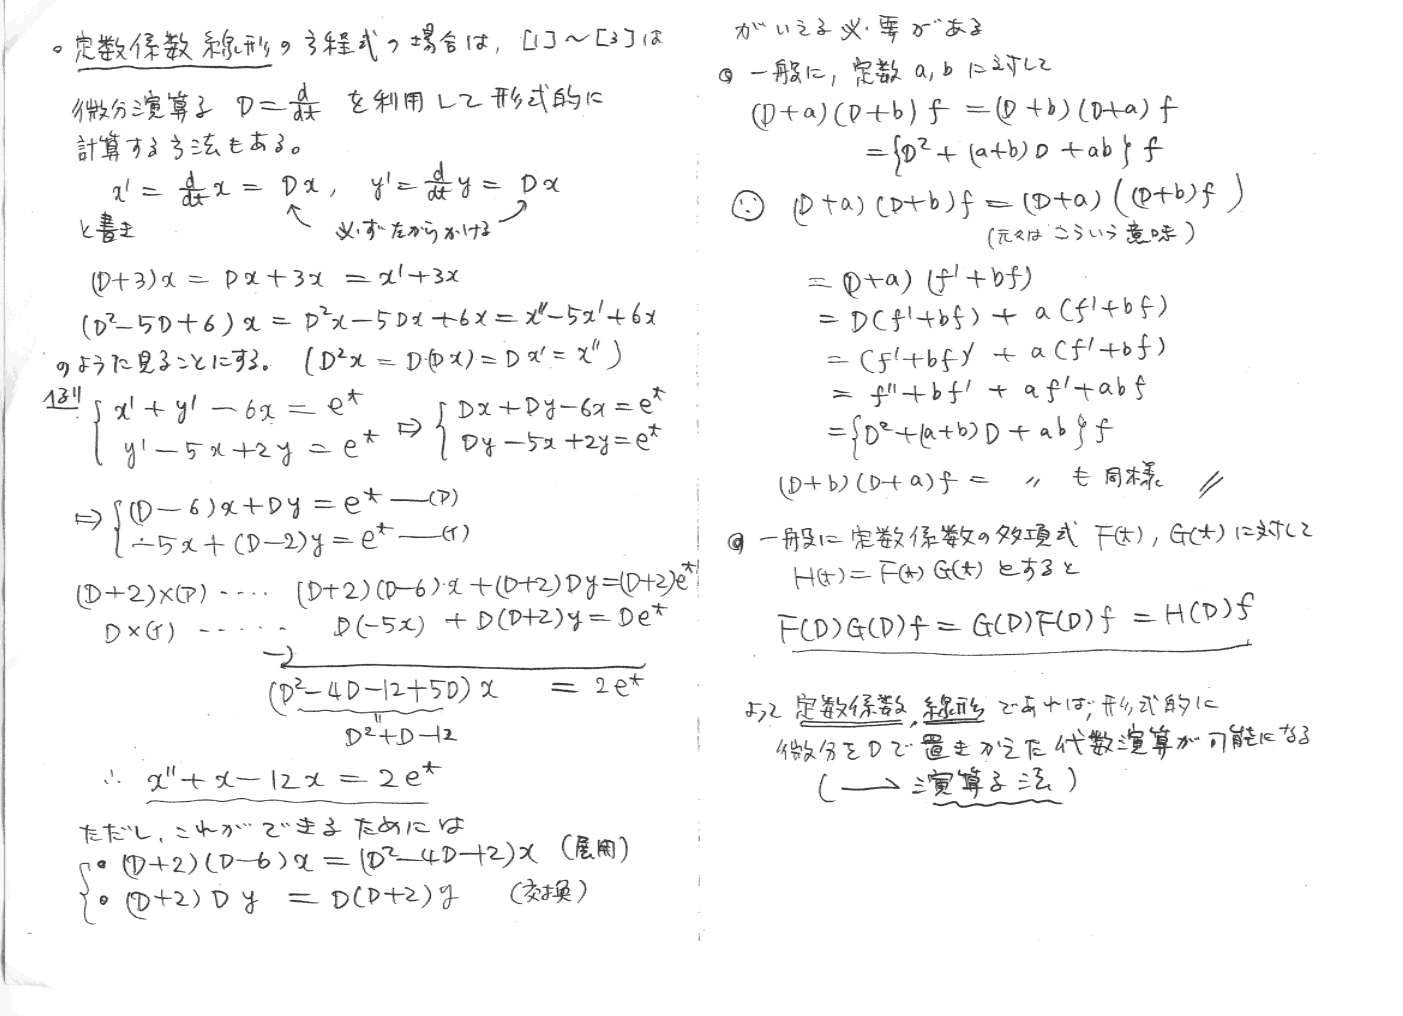 。定数係数 線形の方程式の場合は, [1]～[3]は
微分演算子 D=d/dt を利用して形式的に
計算する方法もある。
x' = d/dt x = Dx, y' = d/dt y = Dx
と書き 必ず左からかける
(D+3)x = Dx+3x = x'+3x
(D²-5D+6)x = D²x-5Dx+6x = x''-5x'+6x
のように見ることにする。 (D²x = D(Dx) = Dx' = x'')
例 { x'+y'-6x = e^t ⇒ { Dx+Dy-6x = e^t
y'-5x+2y = e^t Dy-5x+2y = e^t
⇒ { (D-6)x+Dy = e^t —(ア)
-5x+(D-2)y = e^t —(イ)
(D+2)×(ア) ···· (D+2)(D-6)x+(D+2)Dy=(D+2)e^t
D×(イ) ····· D(-5x) + D(D+2)y = De^t
-)
(D²-4D-12+5D)x = 2e^t
"
D²+D-12
∴ x''+x-12x = 2e^t
ただし、これができるためには
{ • (D+2)(D-6)x = (D²-4D-12)x (展開)
• (D+2)Dy = D(D+2)y (交換)
がいえる必要がある
◎ 一般に, 定数 a, b に対して
(D+a)(D+b)f = (D+b)(D+a)f
= {D²+(a+b)D+ab}f
∵ (D+a)(D+b)f = (D+a)((D+b)f)
(元々はこういう意味)
= (D+a)(f'+bf)
= D(f'+bf) + a(f'+bf)
= (f'+bf)' + a(f'+bf)
= f''+bf' + af'+abf
= {D²+(a+b)D+ab}f
(D+b)(D+a)f = 〃 も同様 //
◎ 一般に定数係数の多項式 F(t), G(t)に対して
H(t)=F(t)G(t) とすると
F(D)G(D)f = G(D)F(D)f = H(D)f
よって 定数係数, 線形 であれば, 形式的に
微分をDで置きかえた代数演算が可能になる
(→ 演算子法)